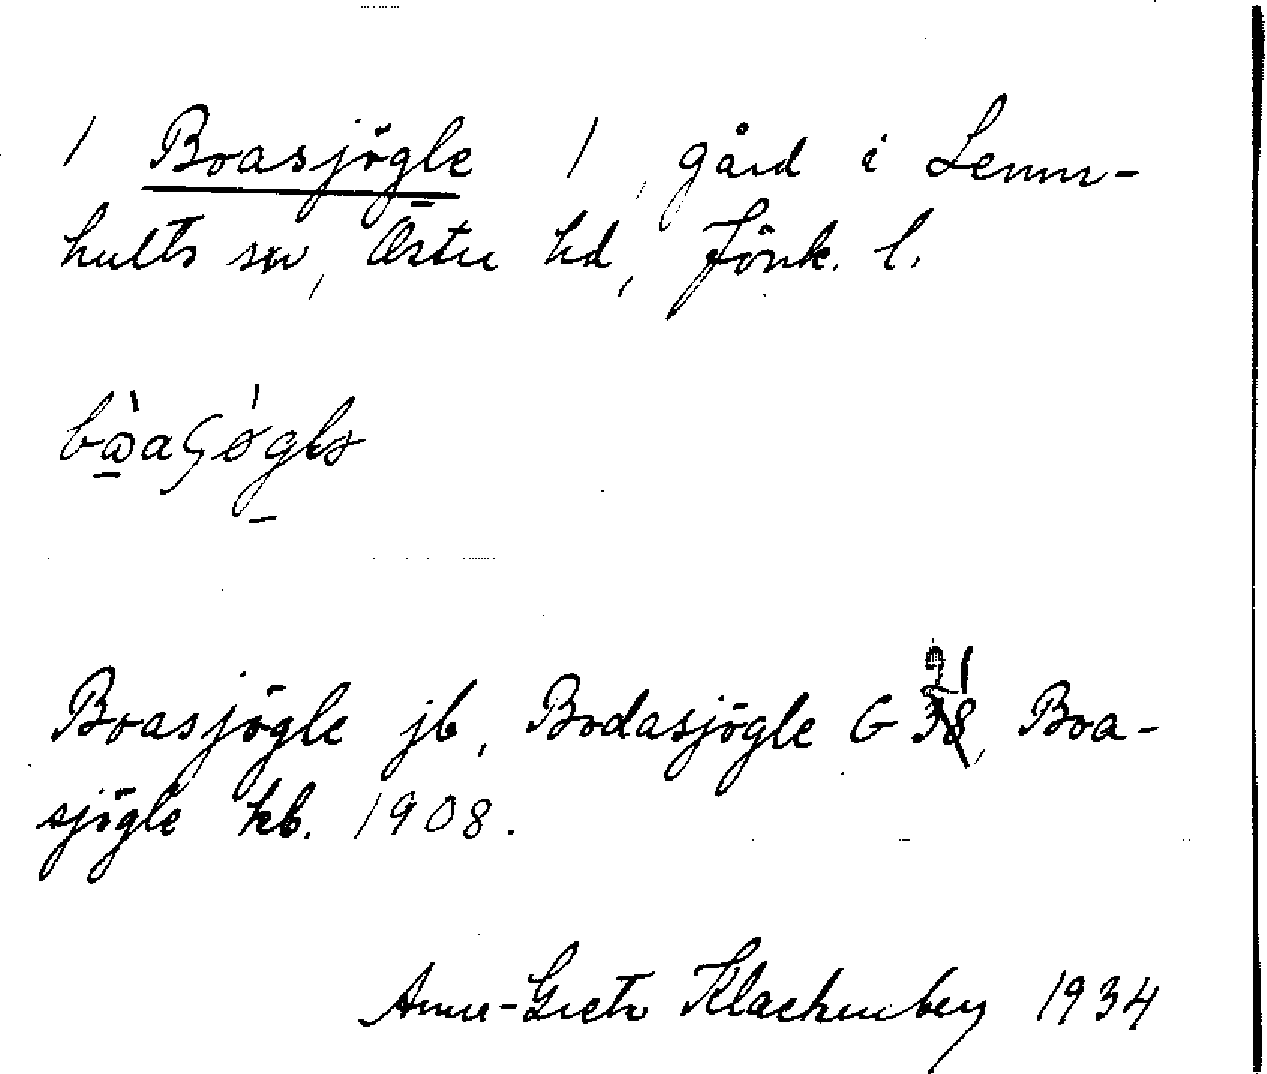 / Boasjögle /, gård i Lemn-
hults sn, Östra hd, Jönk. l.
Boasjögle jb, Bodasjögle G 21, Boa-
sjögle kb. 1908.
Anna-Greta Klackenberg 1934